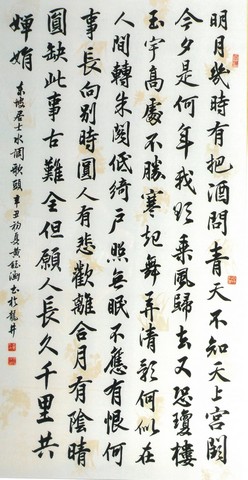 明月幾時有把酒問青天不知天上宮闕
今夕是何年我欲乘風歸去又恐瓊樓
玉宇高處不勝寒起舞弄清影何似在
人間轉朱閣低綺戶照無眠不應有恨何
事長向別時圓人有悲歡離合月有陰晴
圓缺此事古難全但願人長久千里共
嬋娟
東坡居士水調歌頭辛丑初夏黃書於龍井